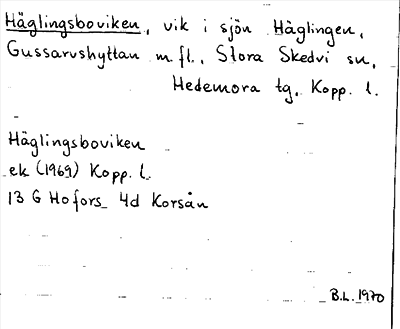 Häglingsboviken, vik i sjön Häglingen,
Gussarvshyttan m.fl., Stora Skedvi sn,
Hedemora tg, Kopp. l.
Häglingsboviken
ek (1969) Kopp. l.
13 G Hofors 4d Korsån
B.L. 1970